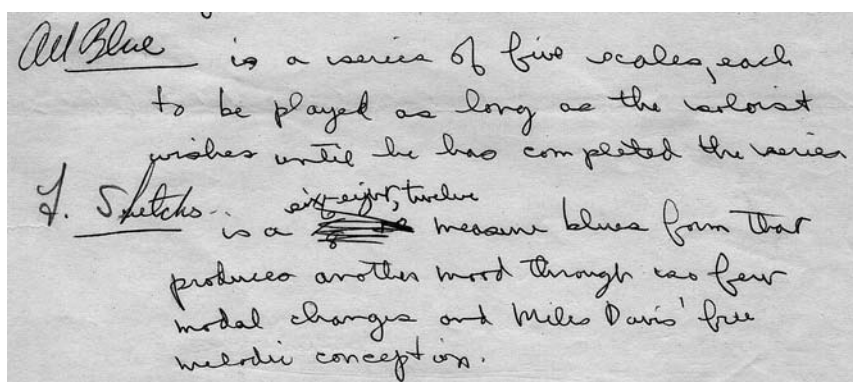 All Blue is a series of five scales, each
to be played as long as the soloist
wishes until he has completed the series
F. Sketchs is a six-eight, twelve measure blues form that
produces another mood through its few
modal changes and Miles Davis' free
melodic conception.